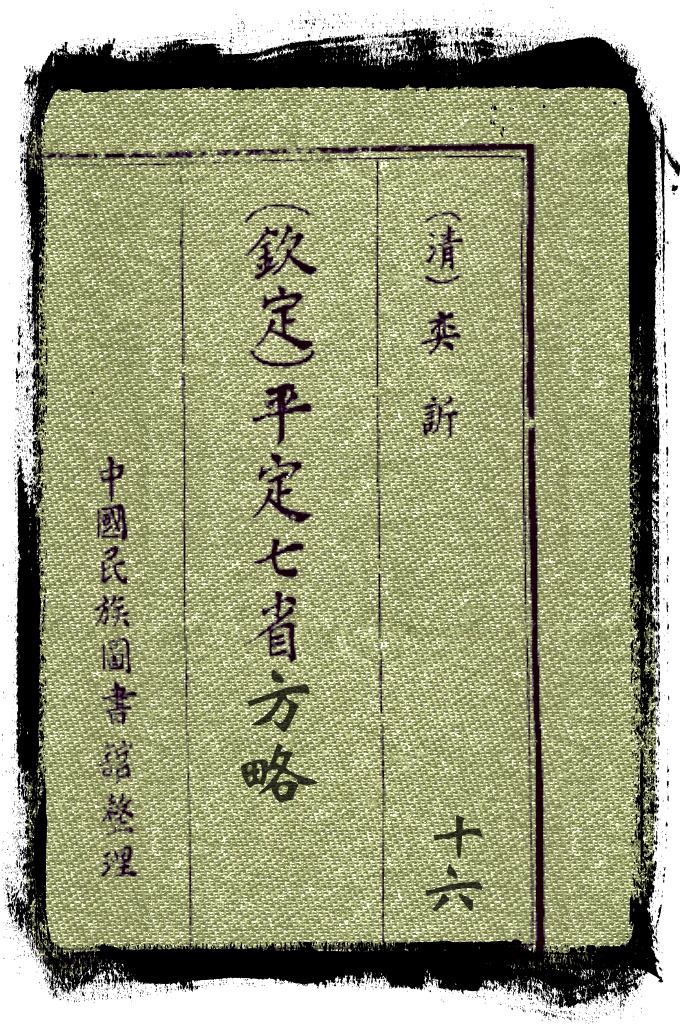 （清）奕訢
十六
（欽定）平定七省方略
中國民族圖書館整理